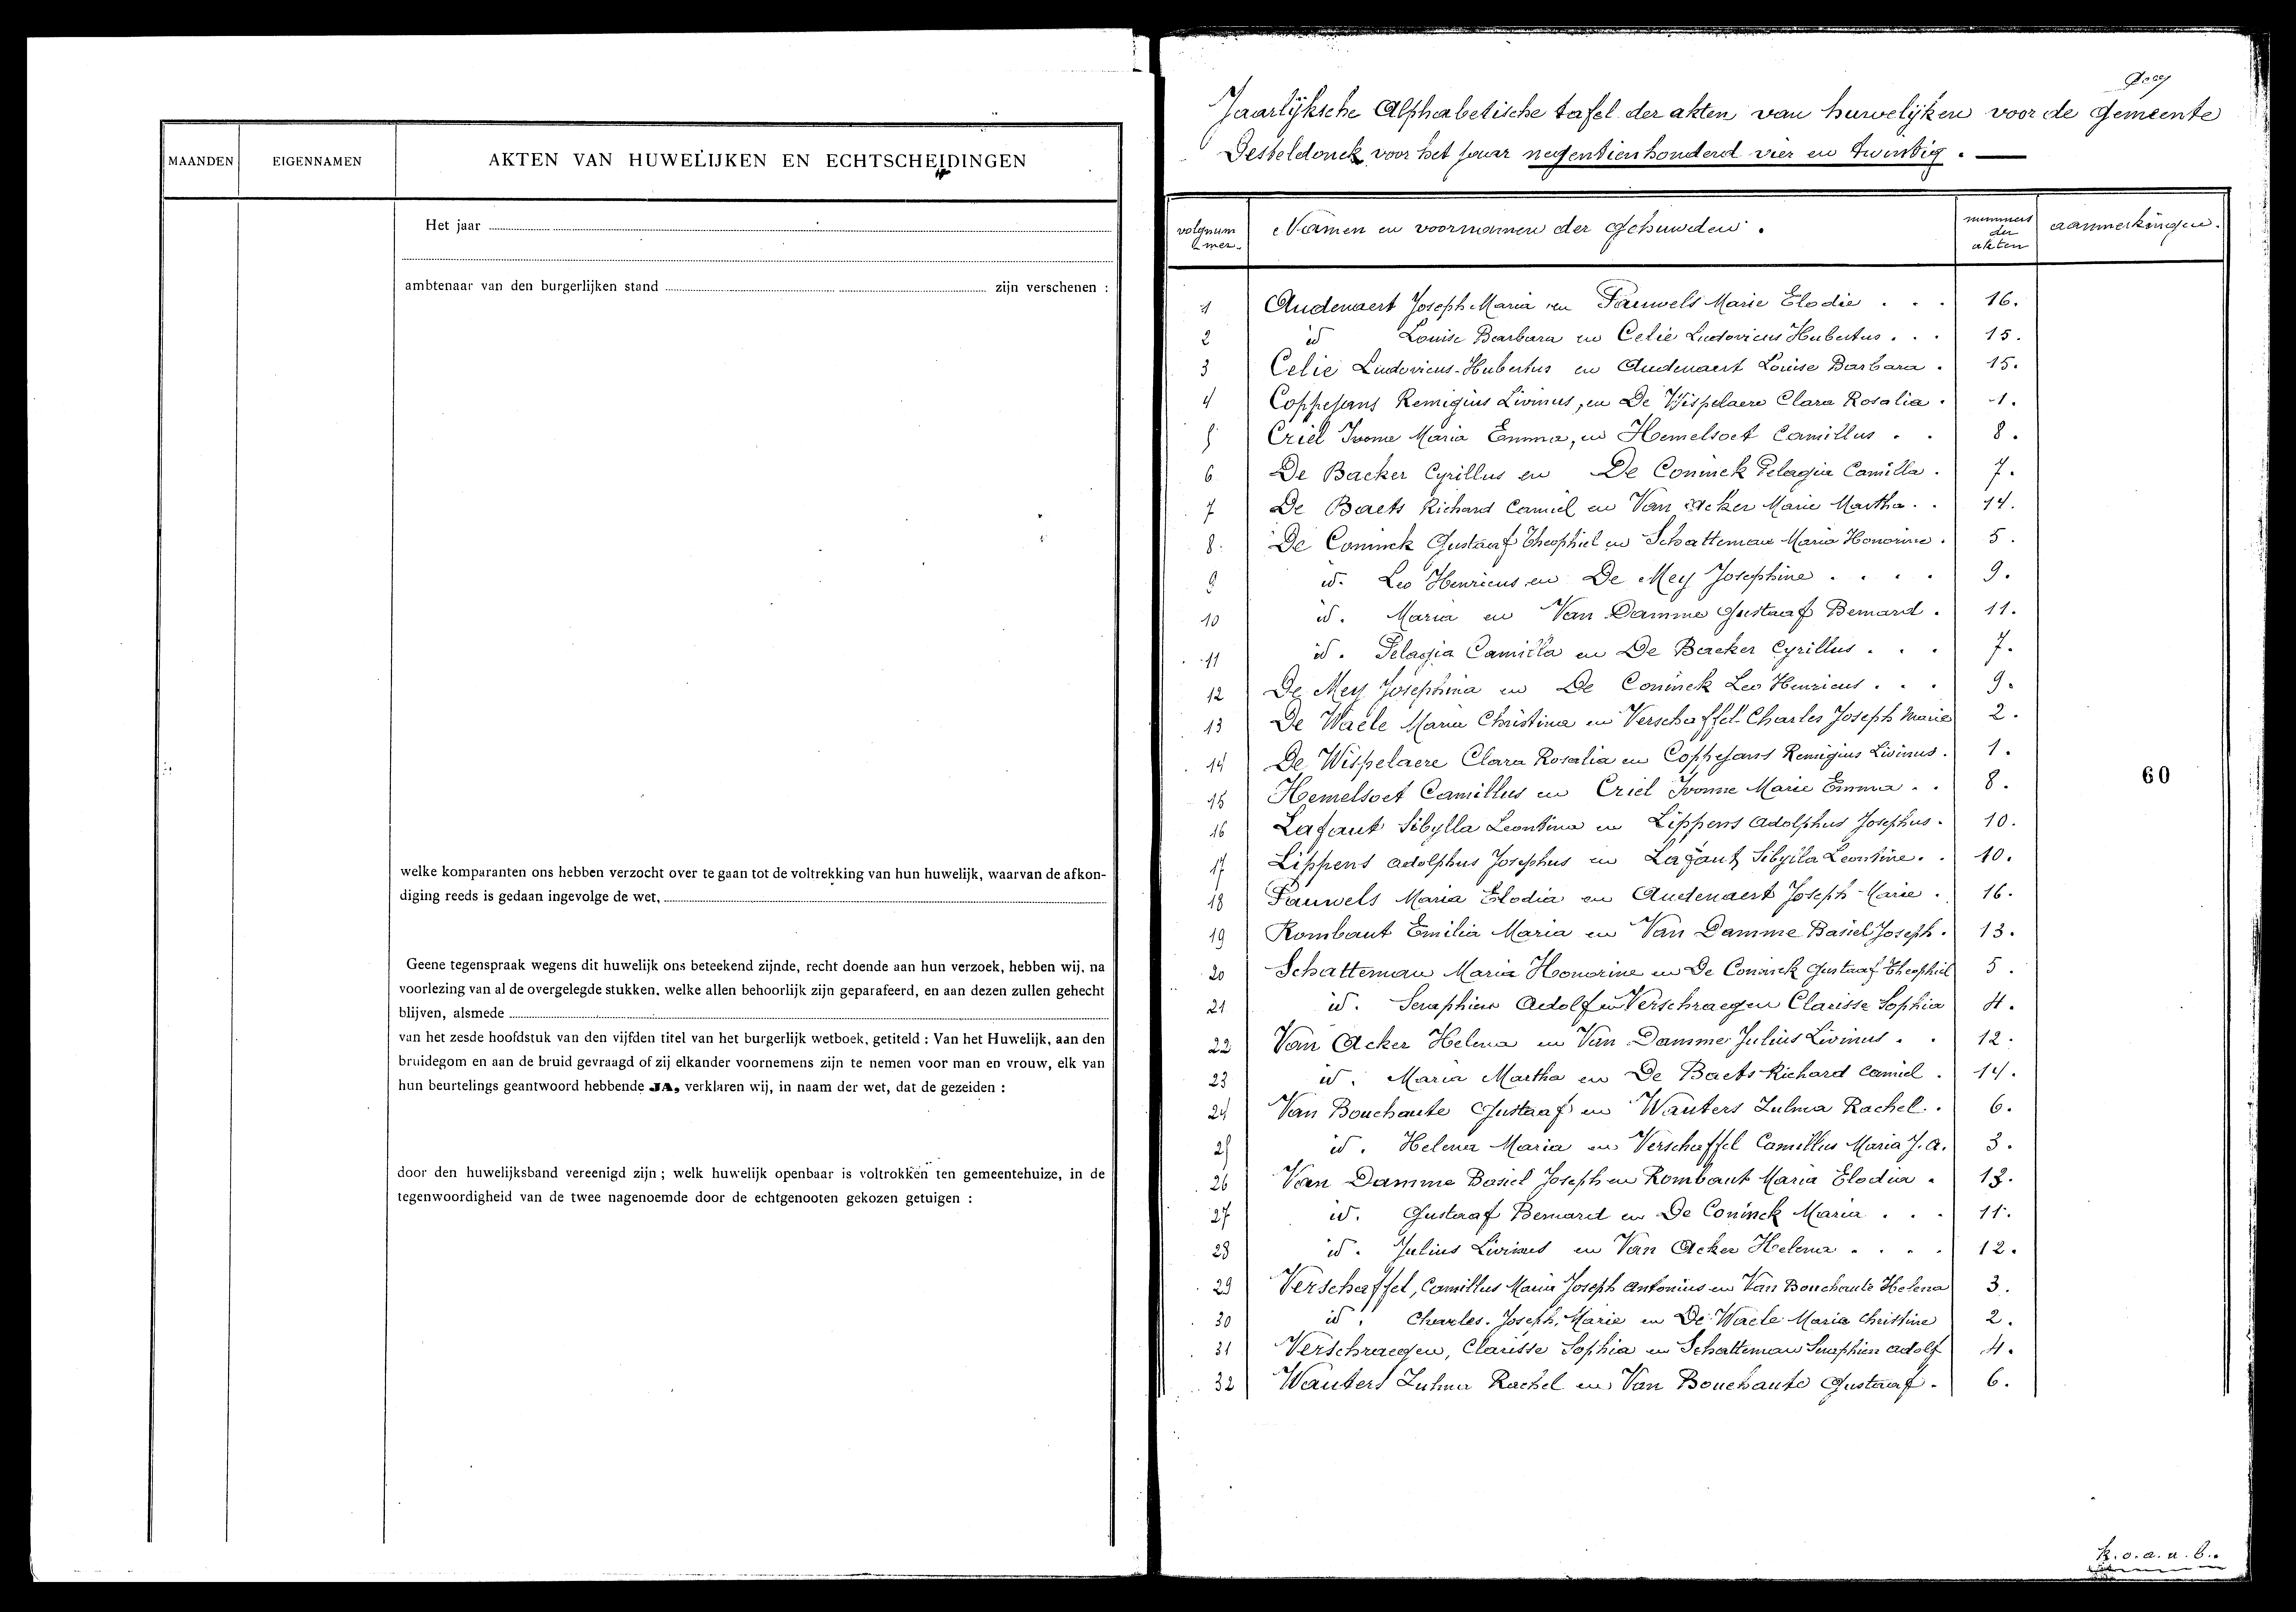 MAANDEN
EIGENNAMEN
AKTEN VAN HUWELIJKEN EN ECHTSCHEIDINGEN
Het jaar
ambtenaar van den burgerlijken stand zijn verschenen :
welke komparanten ons hebben verzocht over te gaan tot de voltrekking van hun huwelijk, waarvan de afkon-
diging reeds is gedaan ingevolge de wet,
Geene tegenspraak wegens dit huwelijk ons beteekend zijnde, recht doende aan hun verzoek, hebben wij, na
voorlezing van al de overgelegde stukken, welke allen behoorlijk zijn geparafeerd, en aan dezen zullen gehecht
blijven, alsmede
van het zesde hoofdstuk van den vijfden titel van het burgerlijk wetboek, getiteld : Van het Huwelijk, aan den
bruidegom en aan de bruid gevraagd of zij elkander voornemens zijn te nemen voor man en vrouw, elk van
hun beurtelings geantwoord hebbende JA, verklaren wij, in naam der wet, dat de gezeiden :
door den huwelijksband vereenigd zijn ; welk huwelijk openbaar is voltrokken ten gemeentehuize, in de
tegenwoordigheid van de twee nagenoemde door de echtgenooten gekozen getuigen :
Jaarlijksche Alphabetische tafel der akten van huwelijken voor de gemeente
Desteldonck voor het jaar negentienhonderd vier en twintig.
volgnummer. Namen en voornamen der gehuwden. nummers der akten aanmerkingen.
1 Audenaert Joseph Maria en Pauwels Marie Elodie . . . 16.
2 id Louise Barbara en Celie Ludovicus Hubertus . . . 15.
3 Celie Ludovicus-Hubertus en Audenaert Louise Barbara . 15.
4 Coppejans Remigius Livinus, en De Wispelaere Clara Rosalia . 1.
5 Criel Ivonne Maria Emma, en Hemelsoet Camillus . . 8.
6 De Backer Cyrillus en De Coninck Pelagia Camilla . 7.
7 De Baets Richard Camiel en Van Acker Marie Martha . . 14.
8. De Coninck Gustaaf Theophiel en Schatteman Maria Honorine . 5.
9 id. Leo Henricus en De Mey Josephine . . . . 9.
10 id. Maria en Van Damme Gustaaf Bernard . 11.
11 id. Pelagia Camilla en De Backer Cyrillus . . . 7.
12 De Mey Josephina en De Coninck Leo Henricus . . . 9.
13 De Waele Maria Christina en Verschaffel Charles Joseph Marie 2.
14 De Wispelaere Clara Rosalia en Coppejans Remigius Livinus . 1.
15 Hemelsoet Camillus en Criel Ivonne Marie Emma . . 8.
16 Lafaut Sibylla Leontina en Lippens Adolphus Josephus . 10.
17 Lippens Adolphus Josephus en Lafaut Sibylla Leontine . . 10.
18 Pauwels Maria Elodia en Audenaert Joseph Marie . 16.
19 Rombaut Emilia Maria en Van Damme Basiel Joseph . 13.
20 Schatteman Maria Honorine en De Coninck Gustaaf Theophiel 5.
21 id. Seraphien Adolf en Verschraegen Clarisse Sophia 4.
22 Van Acker Helena en Van Damme Julius Livinus . . 12.
23 id. Maria Martha en De Baets Richard Camiel . 14.
24 Van Bouchaute Gustaaf en Wauters Zulma Rachel . . 6.
25 id. Helena Maria en Verschaffel Camillus Maria J. A. 3.
26 Van Damme Basiel Joseph en Rombaut Maria Elodia . 13.
27 id. Gustaaf Bernard en De Coninck Maria . . . 11.
28 id. Julius Livinus en Van Acker Helena . . . . 12.
29 Verschaffel, Camillus Maria Joseph Antonius en Van Bouchaute Helena 3.
30 id. Charles. Joseph. Marie en De Waele Maria Christine 2.
31 Verschraegen, Clarisse Sophia en Schatteman Seraphien Adolf 4.
32 Wauters Zulma Rachel en Van Bouchaute Gustaaf . 6.
60